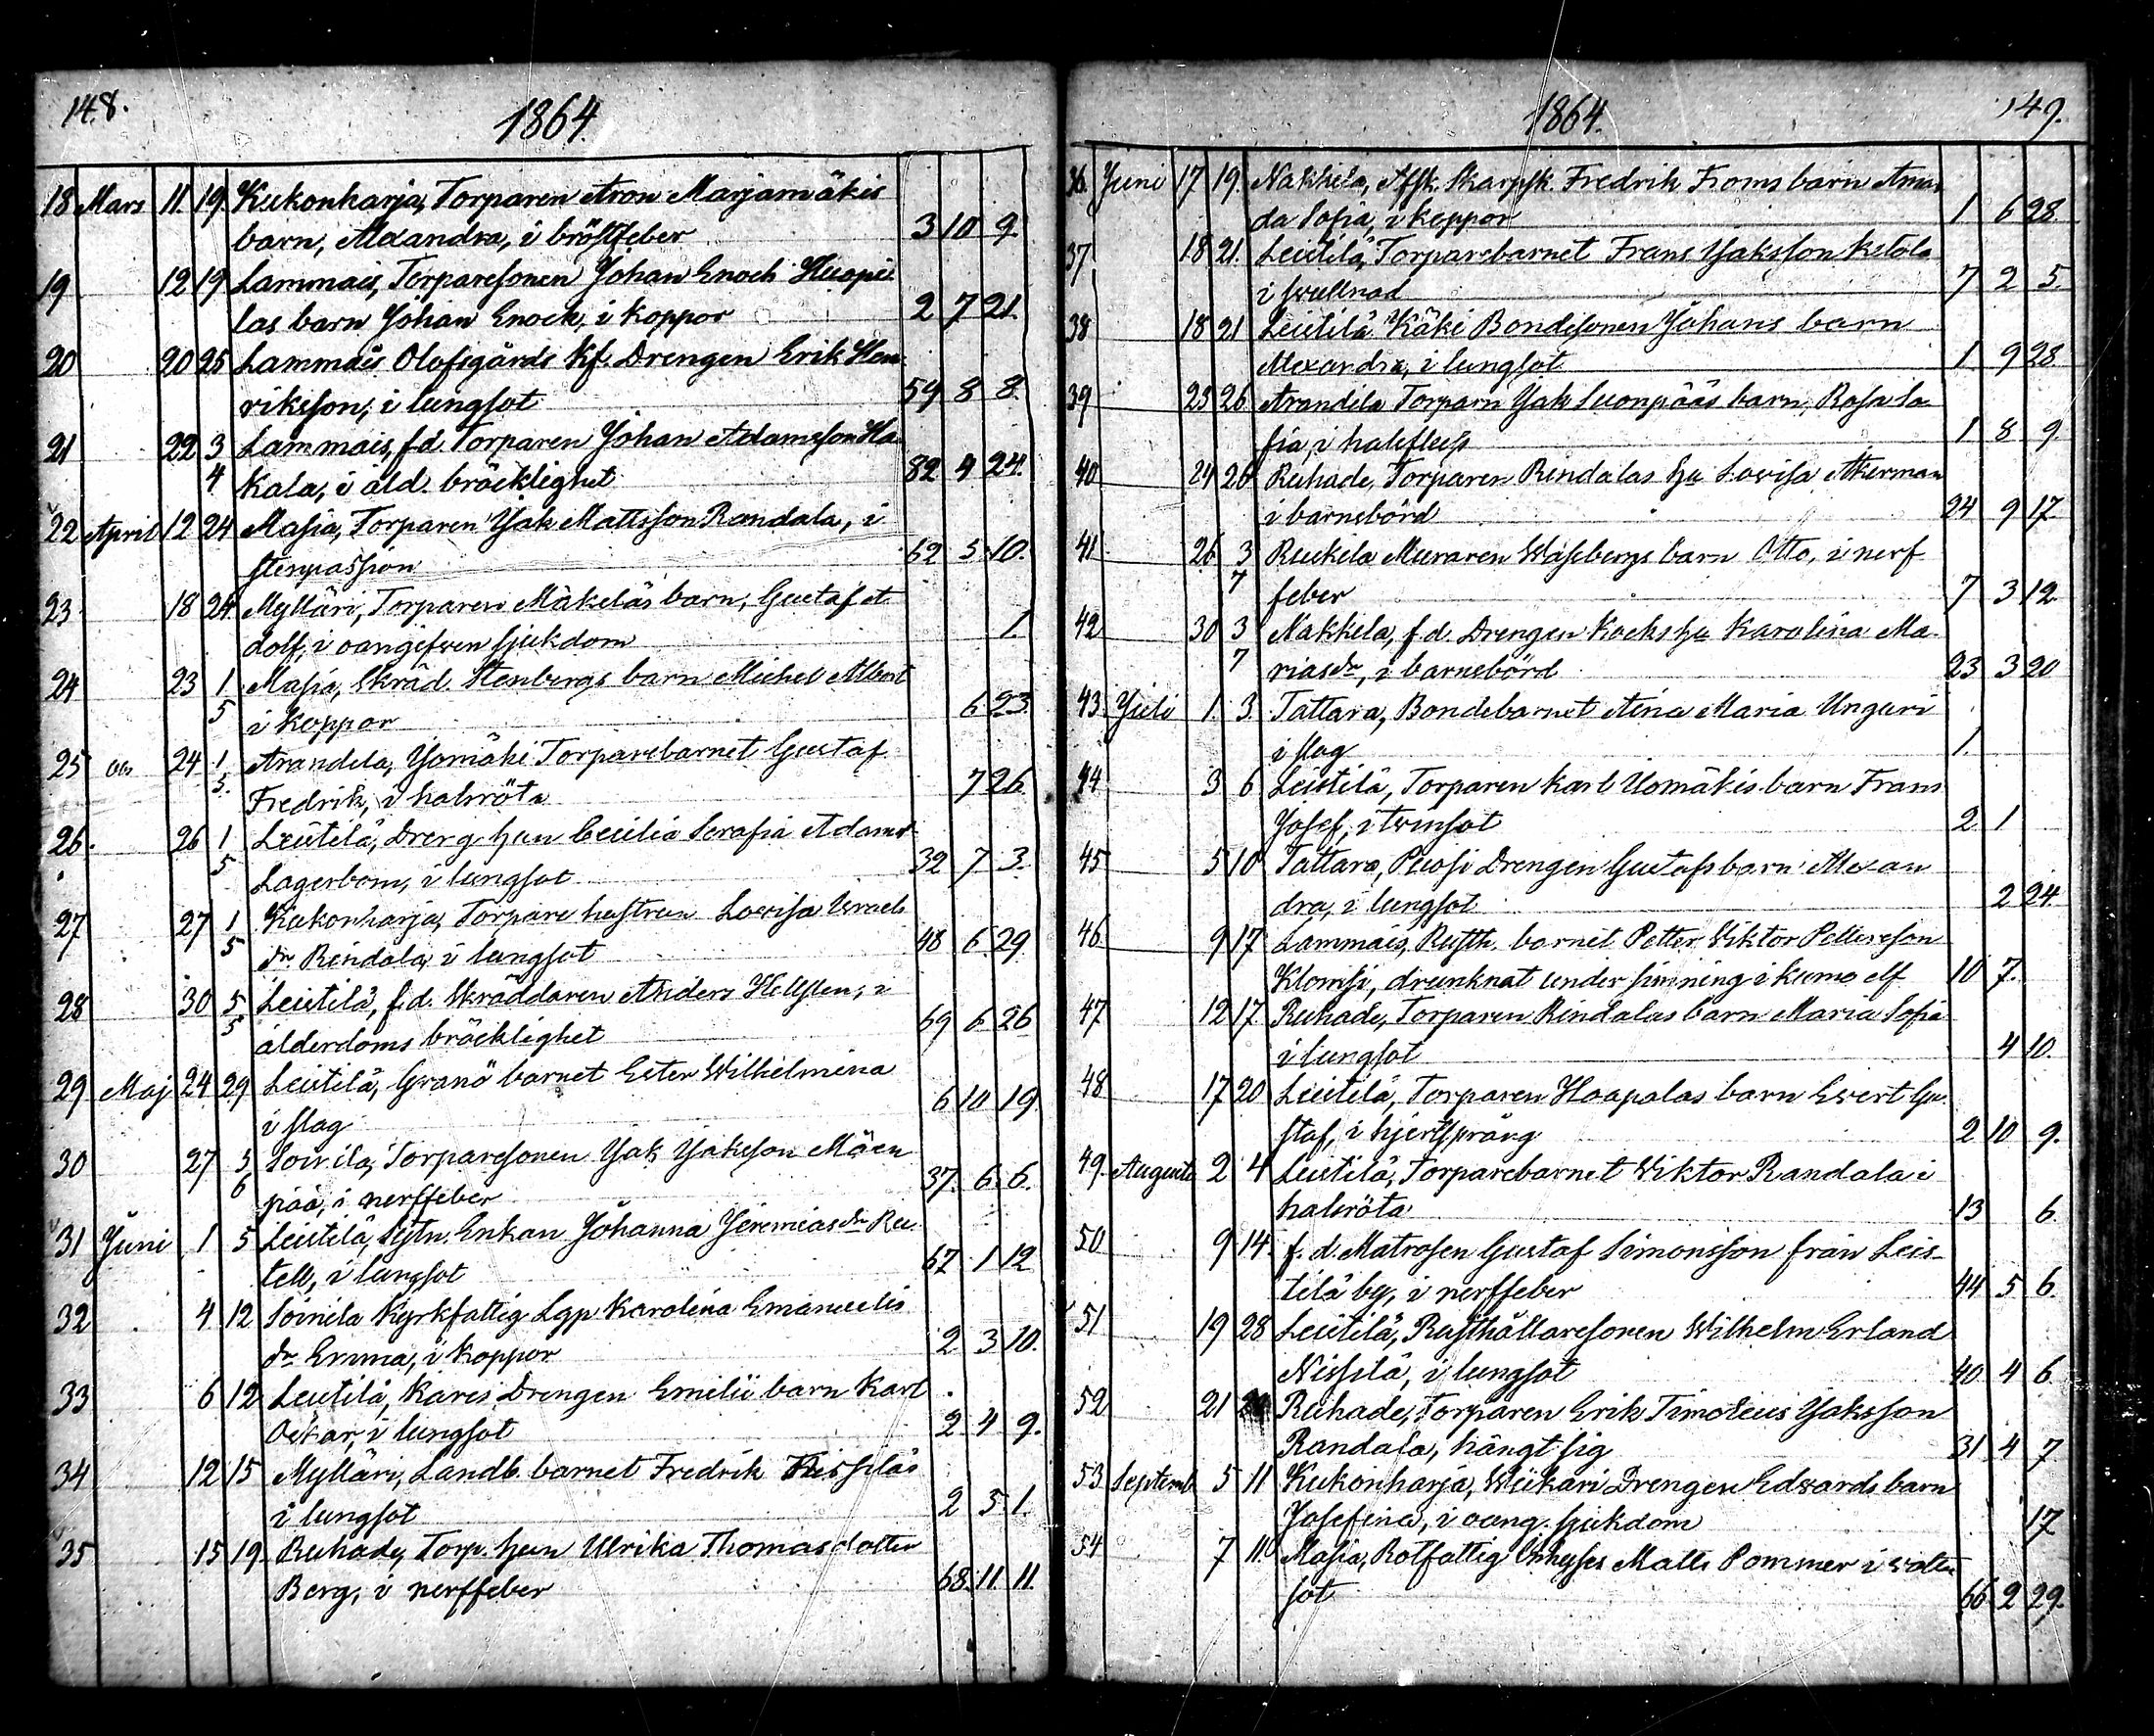 148.
1864.
18 Mars 11. 19. Kukonharja, Torparen Aron Marjamäkis
barn, Alexandra, i bröstfeber 3 10 9.
19 12 19 Lammais, Torparesonen Johan Enoch Huopi
las barn Johan Enoch, i koppor 2 7 21.
20 20 25 Lammais Olofsgårds Kf. Drengen Erik Hen
riksson, i lungsot 59 8 8.
21 22 3 Lammais, f.d. Torparen Johan Adamsson Ha
4 kala, i åld. bräcklighet 82 4 24.
22 April 12 24 Masia, Torparen Jak Mattsson Randala, i
stenpassion 62 5 10.
23 18 24. Mylläri, Torparen Mäkeläs barn, Gustaf A
dolf, i oangifven sjukdom 1.
24 23 1 Masia, Skräd. Stenbergs barn Michel Albert
5 i koppor 6 23.
25 24 1 Arandila, Jomäki Torparebarnet Gustaf
5. Fredrik, i halsröta 7 26.
26. 26 1 Leistilä, Dreng hun Cecilia Serafia Adamsdr
5 Lagerbom, i lungsot 32 7 3.
27 27 1 Kukonharja, Torpare hustrun Lovisa Israels
5 dr Rindala, i lungsot 48 6 29.
28 30 5 Leistilä, f.d. Skräddaren Anders Hellsten, i
5 ålderdoms bräcklighet 69 6 26
29 Maj 24 29 Leistilä, Granö barnet Ester Wilhelmina
i slag 6 10 19.
30 27 5 Soinila, Torparesonen Jak Jaksson Mäen
6 pää, i nerffeber 37. 6. 6.
31 Juni 1 5 Leistilä, Sytn. Enkan Johanna Jeremiasdr Ru
tell, i lungsot 67 1 12
32 4 12 Soinila Kyrkfattig Lgp Karolina Emanuels
dr Emma, i koppor 2 3 10.
33 6 12 Leistilä, Kares Drengen Emilii barn Karl
Oskar, i lungsot 2 4 9.
34 12 15 Mylläri, Landb. barnet Fredrik
i lungsot 2 5 1.
35 15 19. Ruhade, Torp. hun Ulrika Thomasdotter
Berg, i nerffeber 68. 11. 11.
149.
1864.
36. Juni 17 19. Nakkila, Afsk. Skarpsk. Fredrik Froms barn Aman
da Sofia, i koppor 1 6 28.
37 18 21. Leistilä, Torparebarnet Frans Jaksson Ketola
i svullnad 7 2 5.
38 18 21 Leistilä Käki Bondesonen Johans barn
Alexandra, i lungsot 1 9 28.
39 23 26 Arandila Torparn Jak Suonpääs barn, Rosa So
fia, i halsfluss 1 8 9.
40 24 26 Ruhade, Torparen Rindalas hu Lovisa Åkerman
i barnsbörd 24 9 17.
41 26 3 Ruskila Muraren Wasbergs barn Otto, i nerf
7 feber 7 3 12.
42 30 3 Nakkila, f.d. Drengen Kocks hu Karolina Ma
7 riasdr, i barnsbörd 23 3 20
43 Juli 1. 3. Tattara, Bondebarnet Aina Maria Unguri
i slag 1.
44 3 6 Leistilä, Torparen Karl Uomäkis barn Frans
Josef, i twinsot 2 1
45 5 10 Tattara, Drengen Gustafs barn Alexan
dra, i lungsot 2 24
46 9 17 Lammais, Rusth. barnet Petter Wiktor Pettersson
Klomsi, drunknat under simning i Kumo elf 10 7.
47 12 17 Ruhade, Torparen Rindalas barn Maria Sofia
i lungsot 4 10
48 17 20 Leistilä, Torparen Haapalas barn Evert Gu
staf, i hjertsprång 2 10 9.
49. Augusti 2 4 Leistilä, Torparebarnet Wiktor Randala i
halsröta 13 6.
50 9 14. f.d. Matrosen Gustaf Simonsson från Leis-
tilä by, i nerffeber 44 5 6.
51 19 28 Leistilä, Rusthållaresonen Wilhelm Erland
Nissilä, i lungsot 40 4 6.
52 21 Ruhade, Torparen Erik Timoteus Jaksson
Randala, hängt sig 31 4 7
53 Septemb 5 11 Kukonharja, Wiikari Drengen Edvards barn
Josefina, i oang. sjukdom 17
54 7 11. Masia, Rotfattig Matts Pommer i watten
sot 66 2 29.